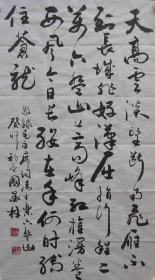 天高雲淡望斷南飛雁不
到長城非好漢屈指行程二
萬六盤山上高峰紅旗漫卷
西風今日長纓在手何時縛
住蒼龍
毛主席詞清平樂六盤山